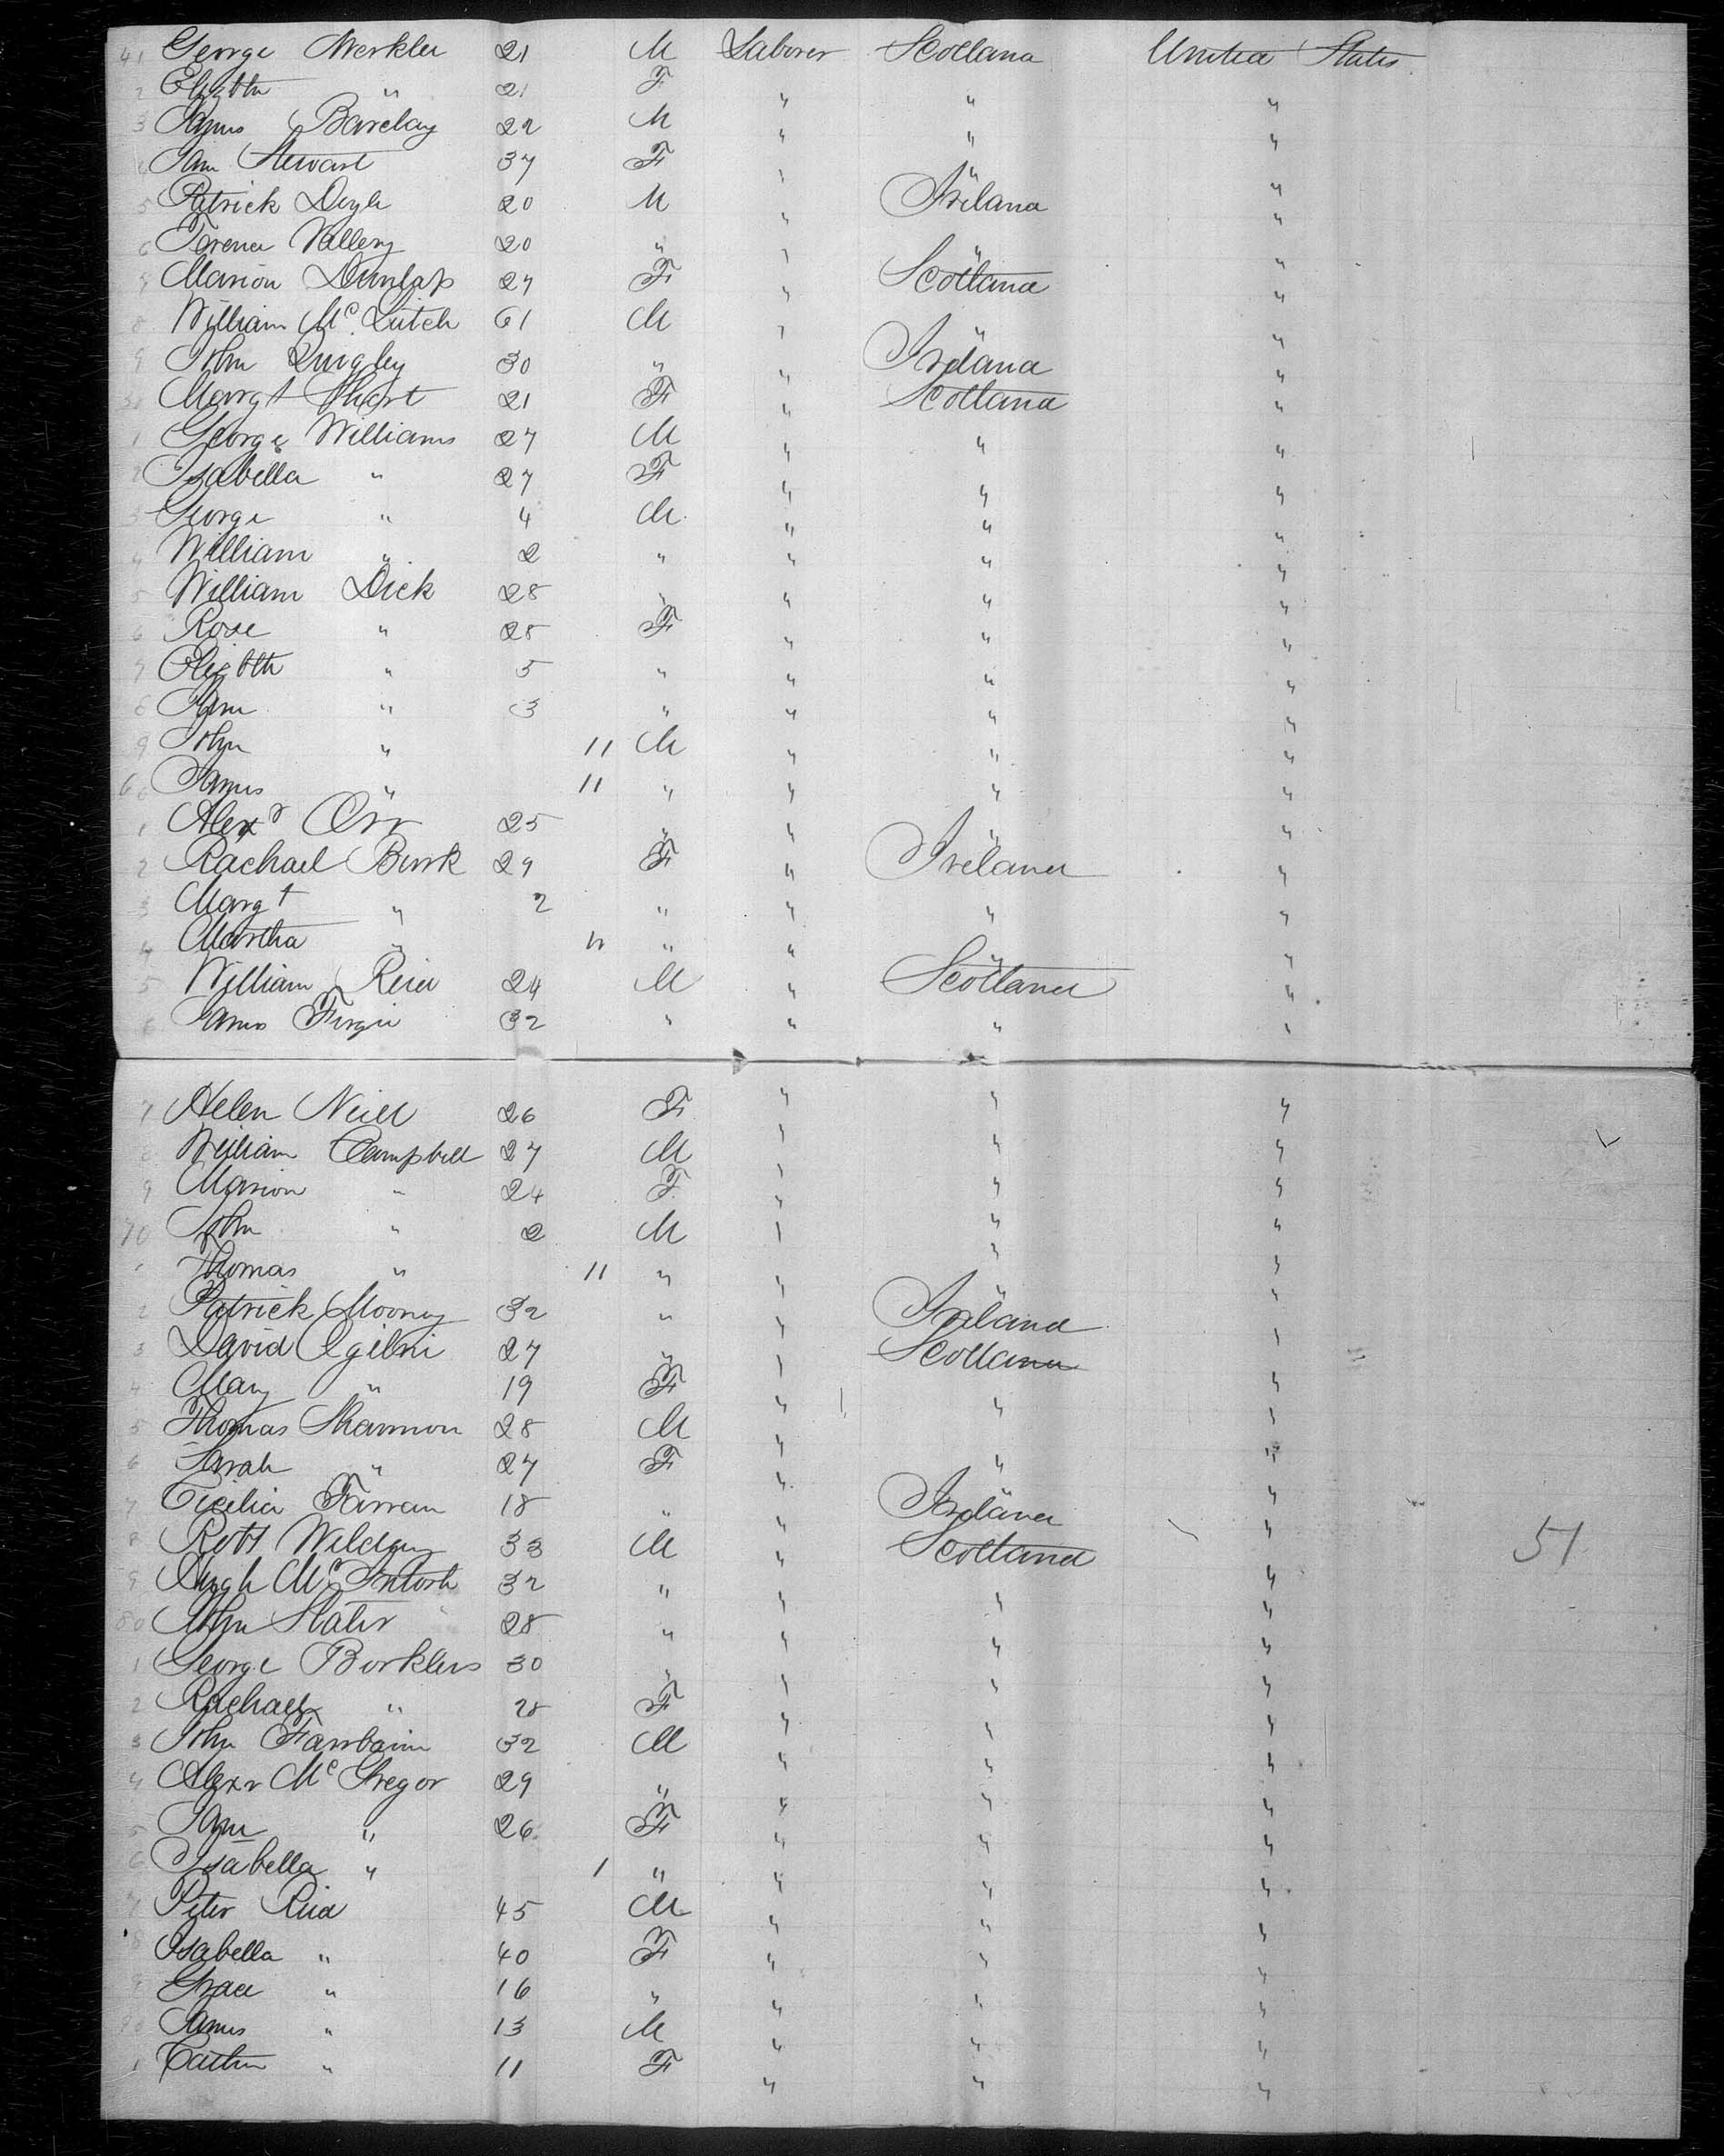 41 George Merkler 21 M Laborer Scotland United States
2 Elizbth " 21 F " " "
3 James Barclay 22 M " " "
4 Jane Stewart 37 F " " "
5 Patrick Doyle 20 M " Ireland "
6 20 " " " "
7 Marion Dunlap 27 F " Scotland "
8 William Mc 61 M " " "
9 John Quigley 30 " " Ireland "
50 Margt Short 21 F " Scotland "
1 George Williams 27 M " " "
2 Isabella " 27 F " " "
3 George " 4 M " " "
4 William " 2 " " " "
5 William Dick 28 " " " "
6 Rose " 28 F " " "
7 Elizbth " 5 " " " "
8 Jane " 3 " " " "
9 John " 11 M " " "
60 James " 11 " " " "
1 Alexr Orr 25 " " " "
2 Rachael Burk 29 F " Ireland "
3 Margt " 2 " " " "
4 Martha " 11 " " " "
5 William Reid 24 M " Scotland "
6 James 32 " " " "
7 Helen Neill 26 F " " "
8 William Campbell 27 M " " "
9 Marion " 24 F " " "
70 John " 2 M " " "
1 Thomas " 11 " " " "
2 Patrick Mooney 32 " " Ireland "
3 David Ogilvie 27 " " Scotland "
4 Mary " 19 F " " "
5 Thomas Shannon 28 M " " "
6 Sarah " 27 F " " "
7 Cicilia Farran 18 " " Ireland "
8 Robt 33 M " Scotland " 51
9 Hugh McIntosh 32 " " " "
80 John Slater 28 " " " "
1 George Borklers 30 " " " "
2 Rachael " 28 F " " "
3 John Fairbairn 32 M " " "
4 Alexr McGregor 29 " " " "
5 Jane " 26 F " " "
6 Isabella " 1 " " " "
7 Peter Reid 45 M " " "
8 Isabella " 40 F " " "
9 Grace " 16 " " " "
90 James " 13 M " " "
1 " 11 F " " "